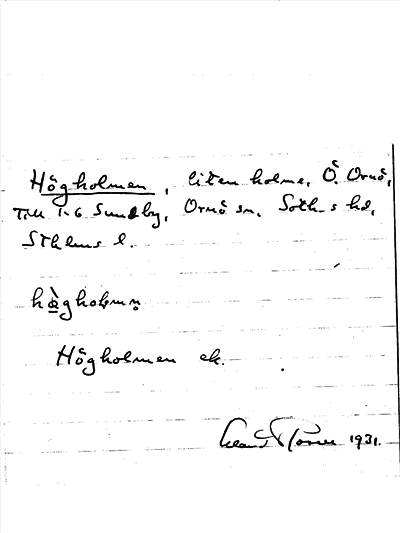 Högholmen, liten holme, Ö. Ornö,
Till 1-6 Sundby, Ornö sn. Soth-s hd,
Sthlms l.
hògholmn̥
Högholmen ek.
1931.